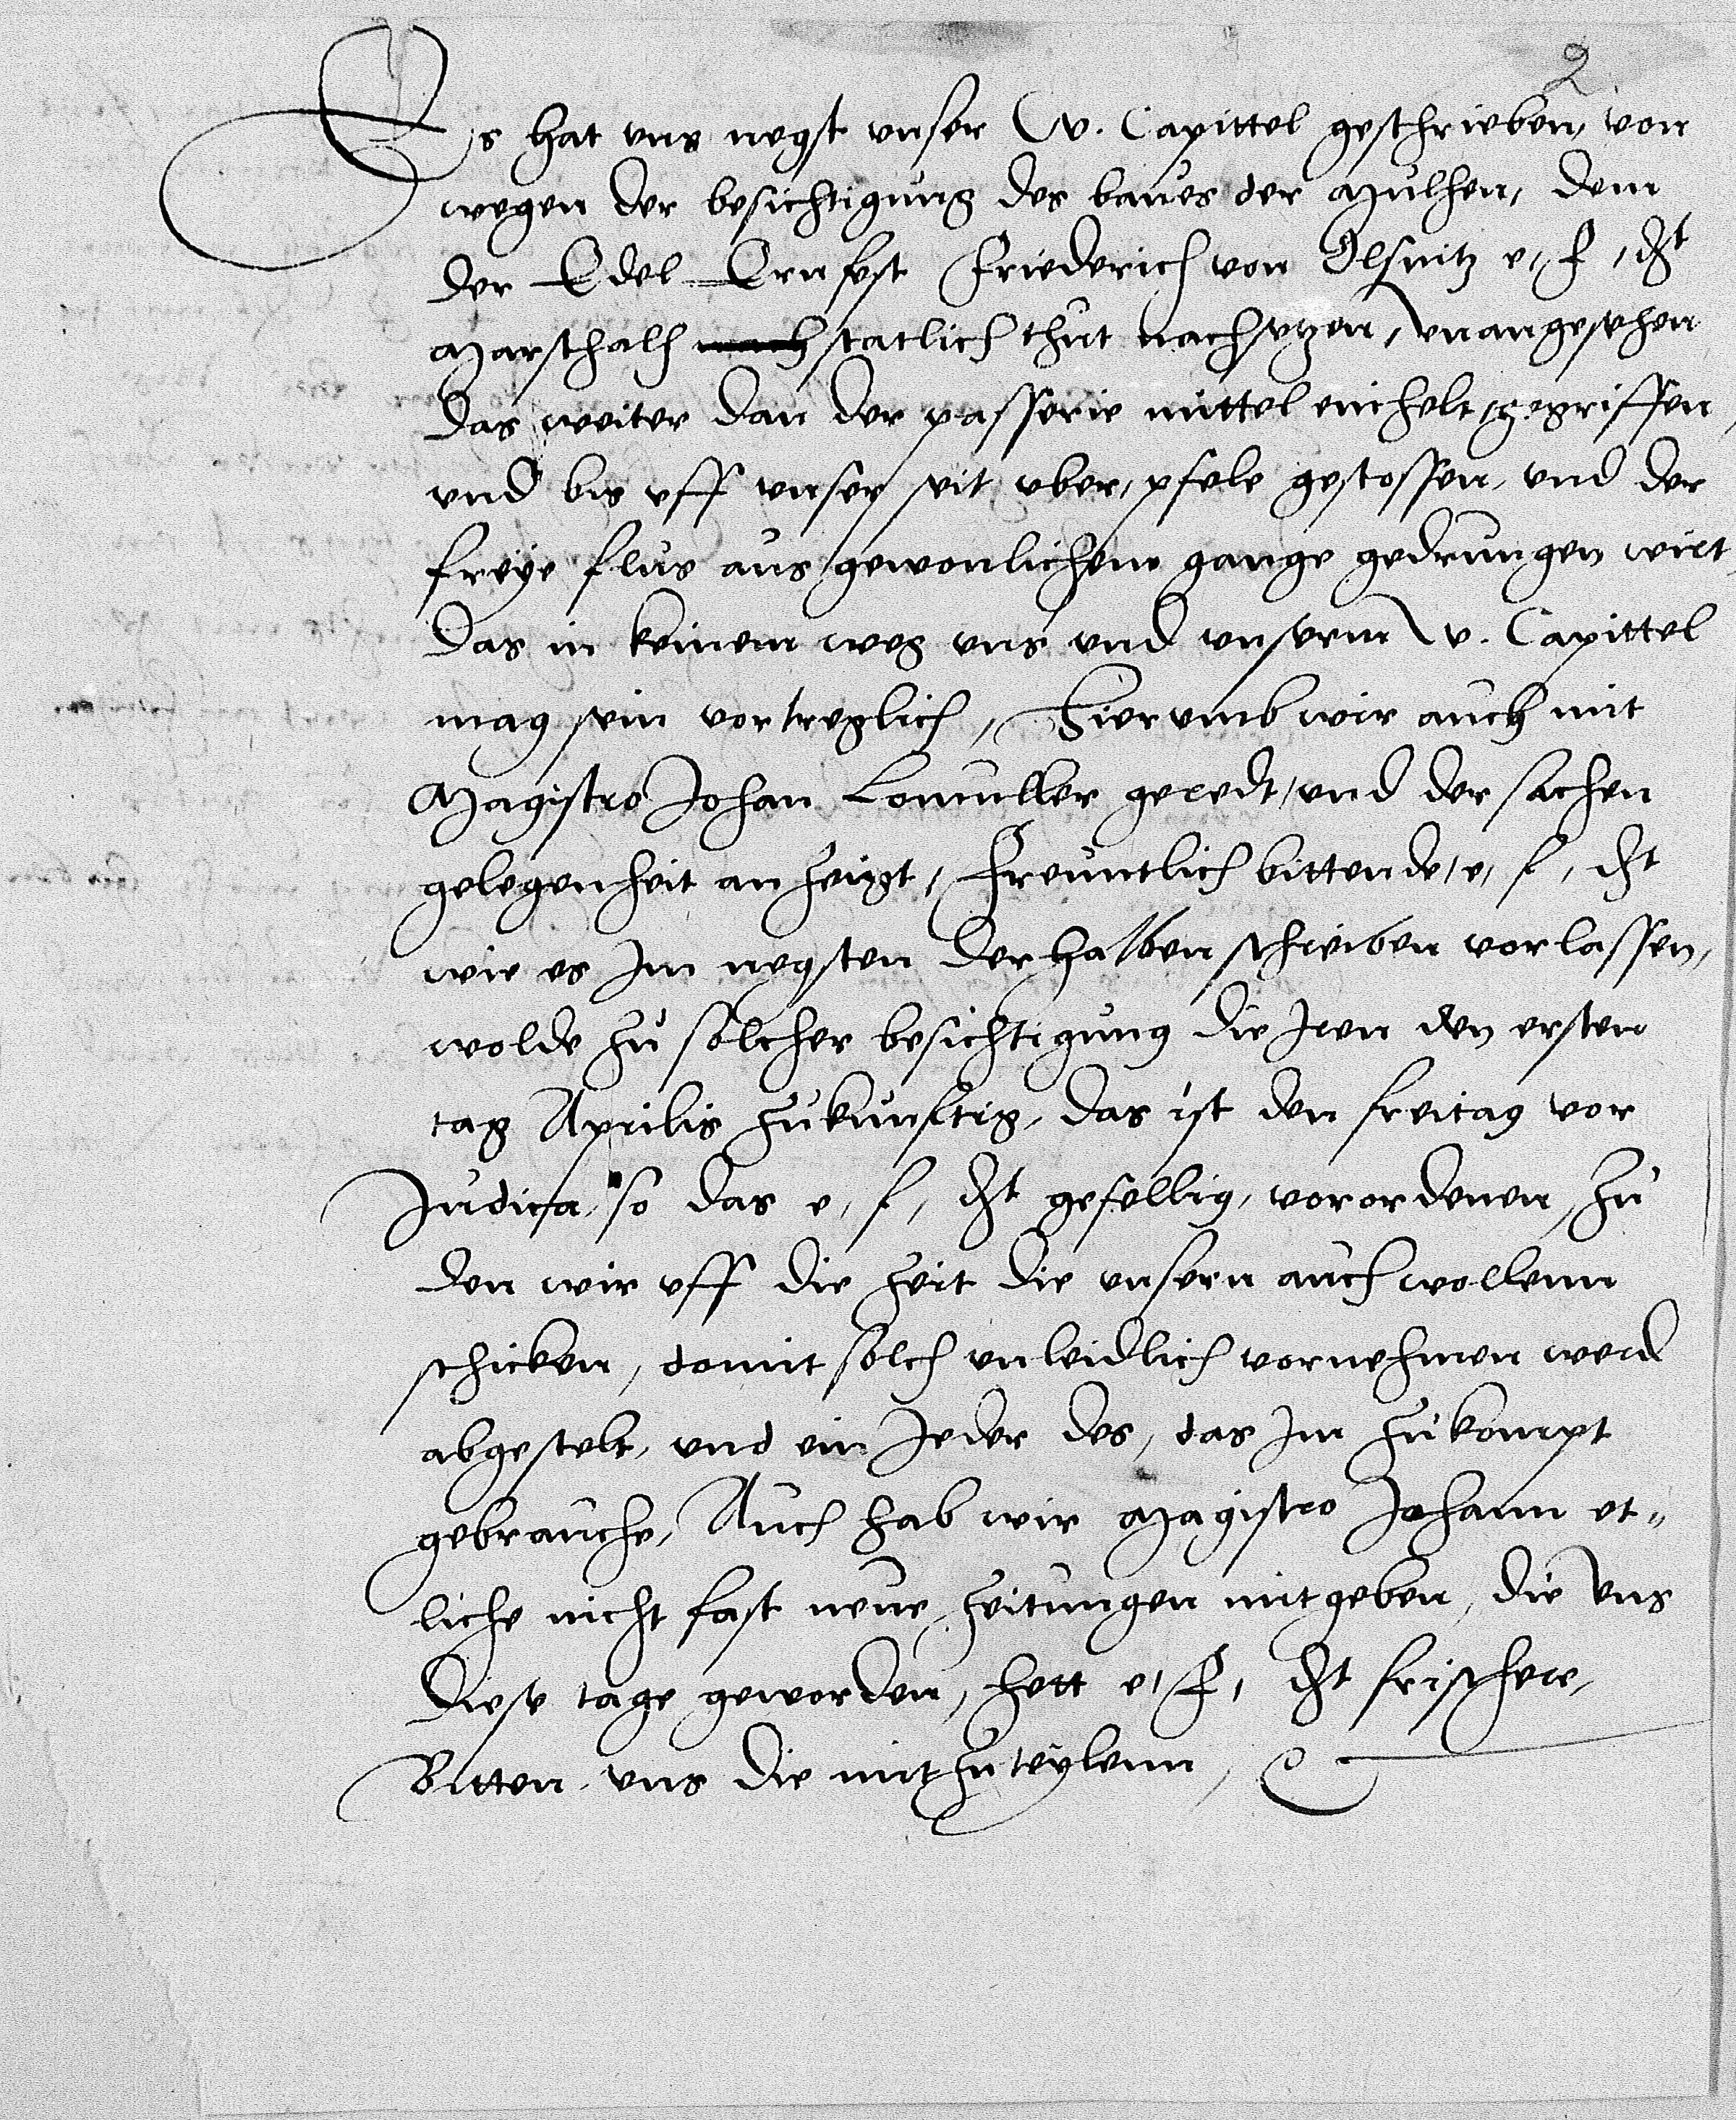 2
Es hat vns negst vnser W. Capittel geschrieben, von
wegen der besichtigung des baues der Mulhen, dem
der Edel Ernfest Friederich von Olsnitz e, f, dt
Marschalh nach statlich thut nachsetzen, vnangesehen
das weiter dan der passerie mittel einhelt, gegriffen,
vnd bis vff vnser seit vber, pfele gestossen, vnd der
freÿe flus aus gewonlichem gange gedrungen wirt,
das in keinem weg vns vnd vnserm W. Capittel
mag sein vortreglich, Hierumb wir auch mit
Magistro Johan Lomuller geredt, vnd der sachen
gelegenheit anzeigt, Freuntlich bittende, e, f, dt
wie es Im negsten derhalben schreiben vorlassen,
wolde zu solcher besichtigung die Iren den ersten
tag Aprilis zukunftig, das ist den freitag vor
Judica, so das e, f, dt gefellig, vorordenen, zu
den wir vff die zeit die vnsern auch wollenn
schicken, domit solch vnleidlich vornehmen werd
abgestelt, vnd ein Jeder des, das Im zukompt
gebrauche, Auch hab wir Magistro Johann et„
liche nicht fast neue zeitungen mitgeben, die vns
diese tage geworden, hett e, f, dt frischere,
Bitten, vns die mitzuteÿlenn,